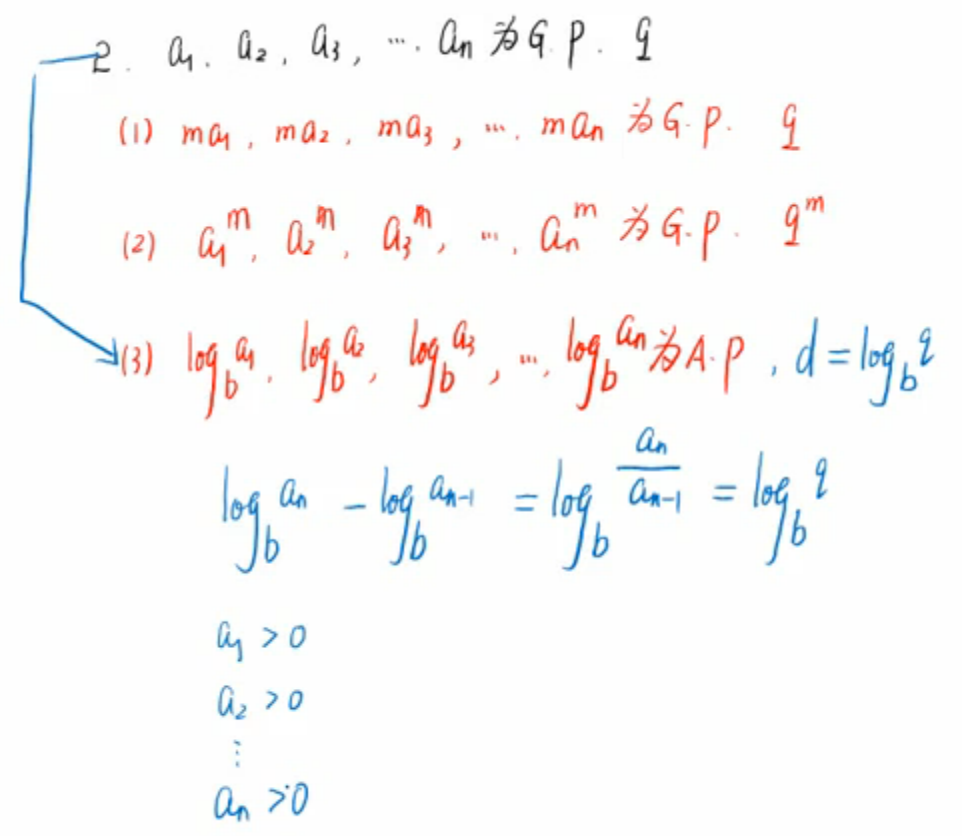 2. a₁, a₂, a₃, …, aₙ 为 G.P. q
(1) ma₁, ma₂, ma₃, …, maₙ 为 G.P. q
(2) a₁^m, a₂^m, a₃^m, …, aₙ^m 为 G.P. q^m
(3) log_b a₁, log_b a₂, log_b a₃, …, log_b aₙ 为 A.P, d = log_b q
log_b aₙ - log_b aₙ₋₁ = log_b (aₙ/aₙ₋₁) = log_b q
a₁ > 0
a₂ > 0
⋮
aₙ > 0